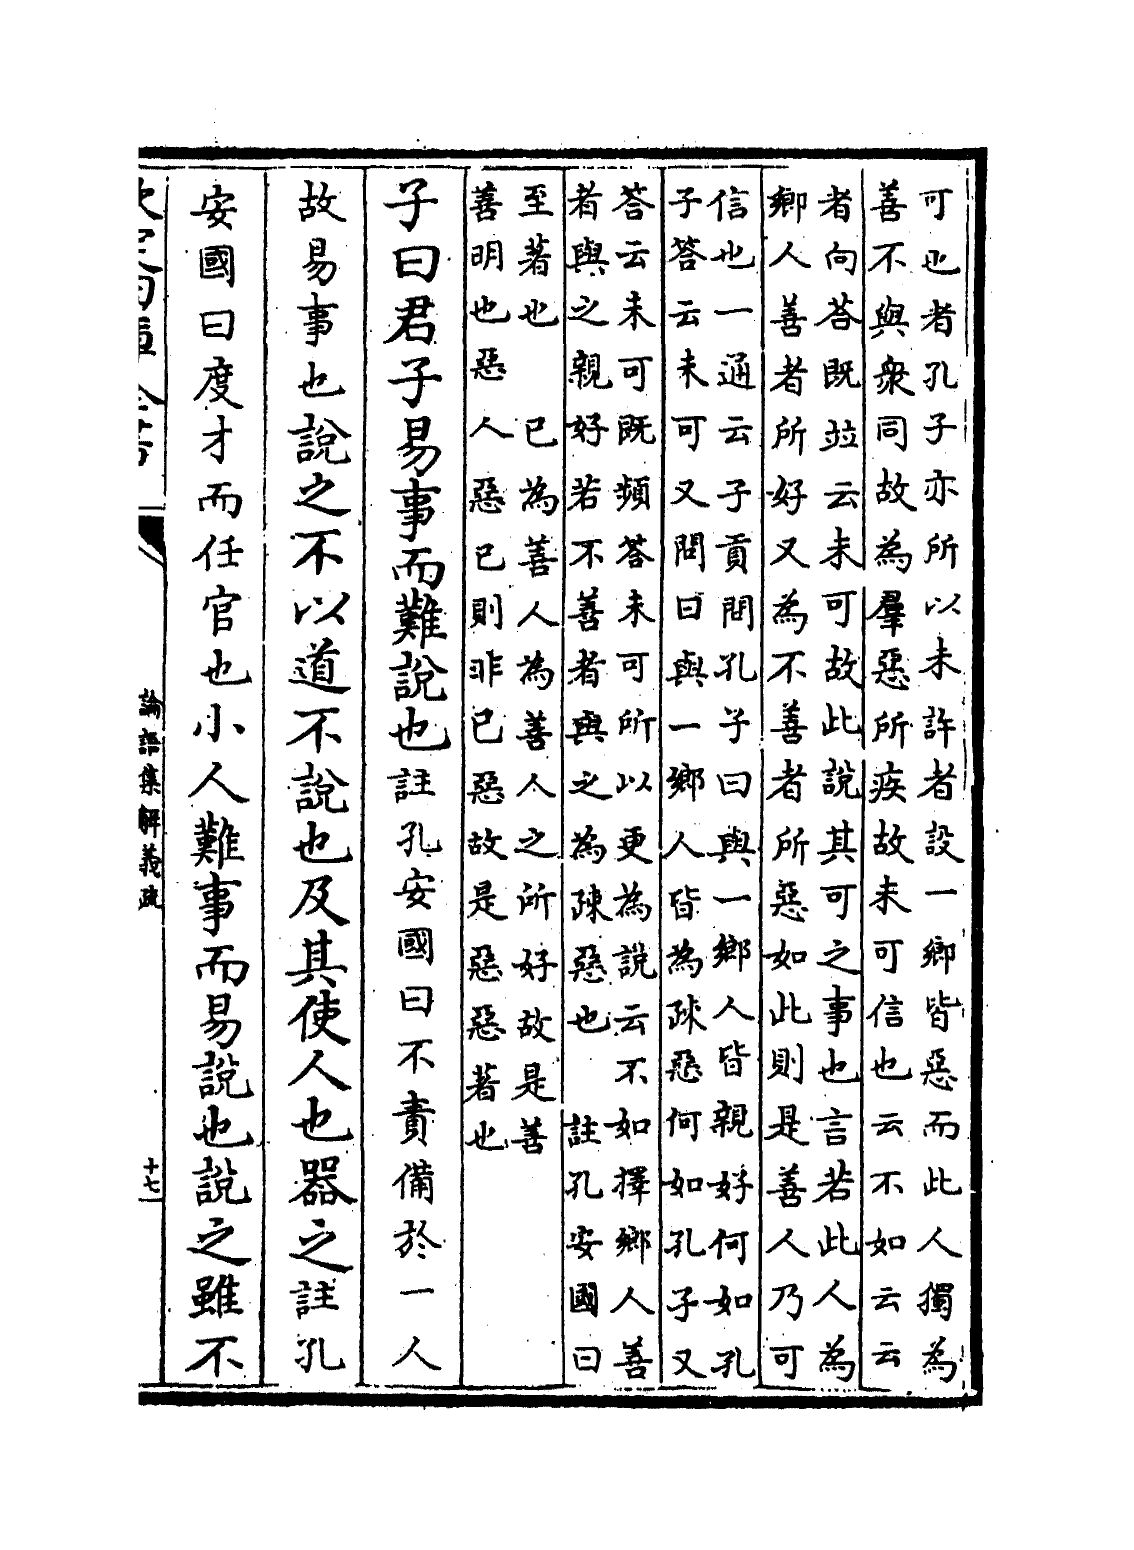 可也者孔子亦所以未許者設一鄉皆惡而此人獨為
善不與衆同故為羣惡所疾故未可信也云不如云云
者向荅既竝云未可故此說其可之事也言若此人為
鄉人善者所好又為不善者所惡如此則是善人乃可
信也一通云子貢問孔子曰與一鄉人皆親好何如孔
子答云未可又問曰與一鄉人皆為疎惡何如孔子又
答云未可既頻答未可所以更為說云不如擇鄉人善
者與之親好若不善者與之為疎惡也 註孔安國曰
至著也 已為善人為善人之所好故是善
善明也惡人惡已則非已惡故是惡惡著也
子曰君子易事而難說也註孔安國曰不責備於一人
故易事也說之不以道不說也及其使人也器之註孔
安國曰度才而任官也小人難事而易說也說之雖不
論語集解義疏
十七